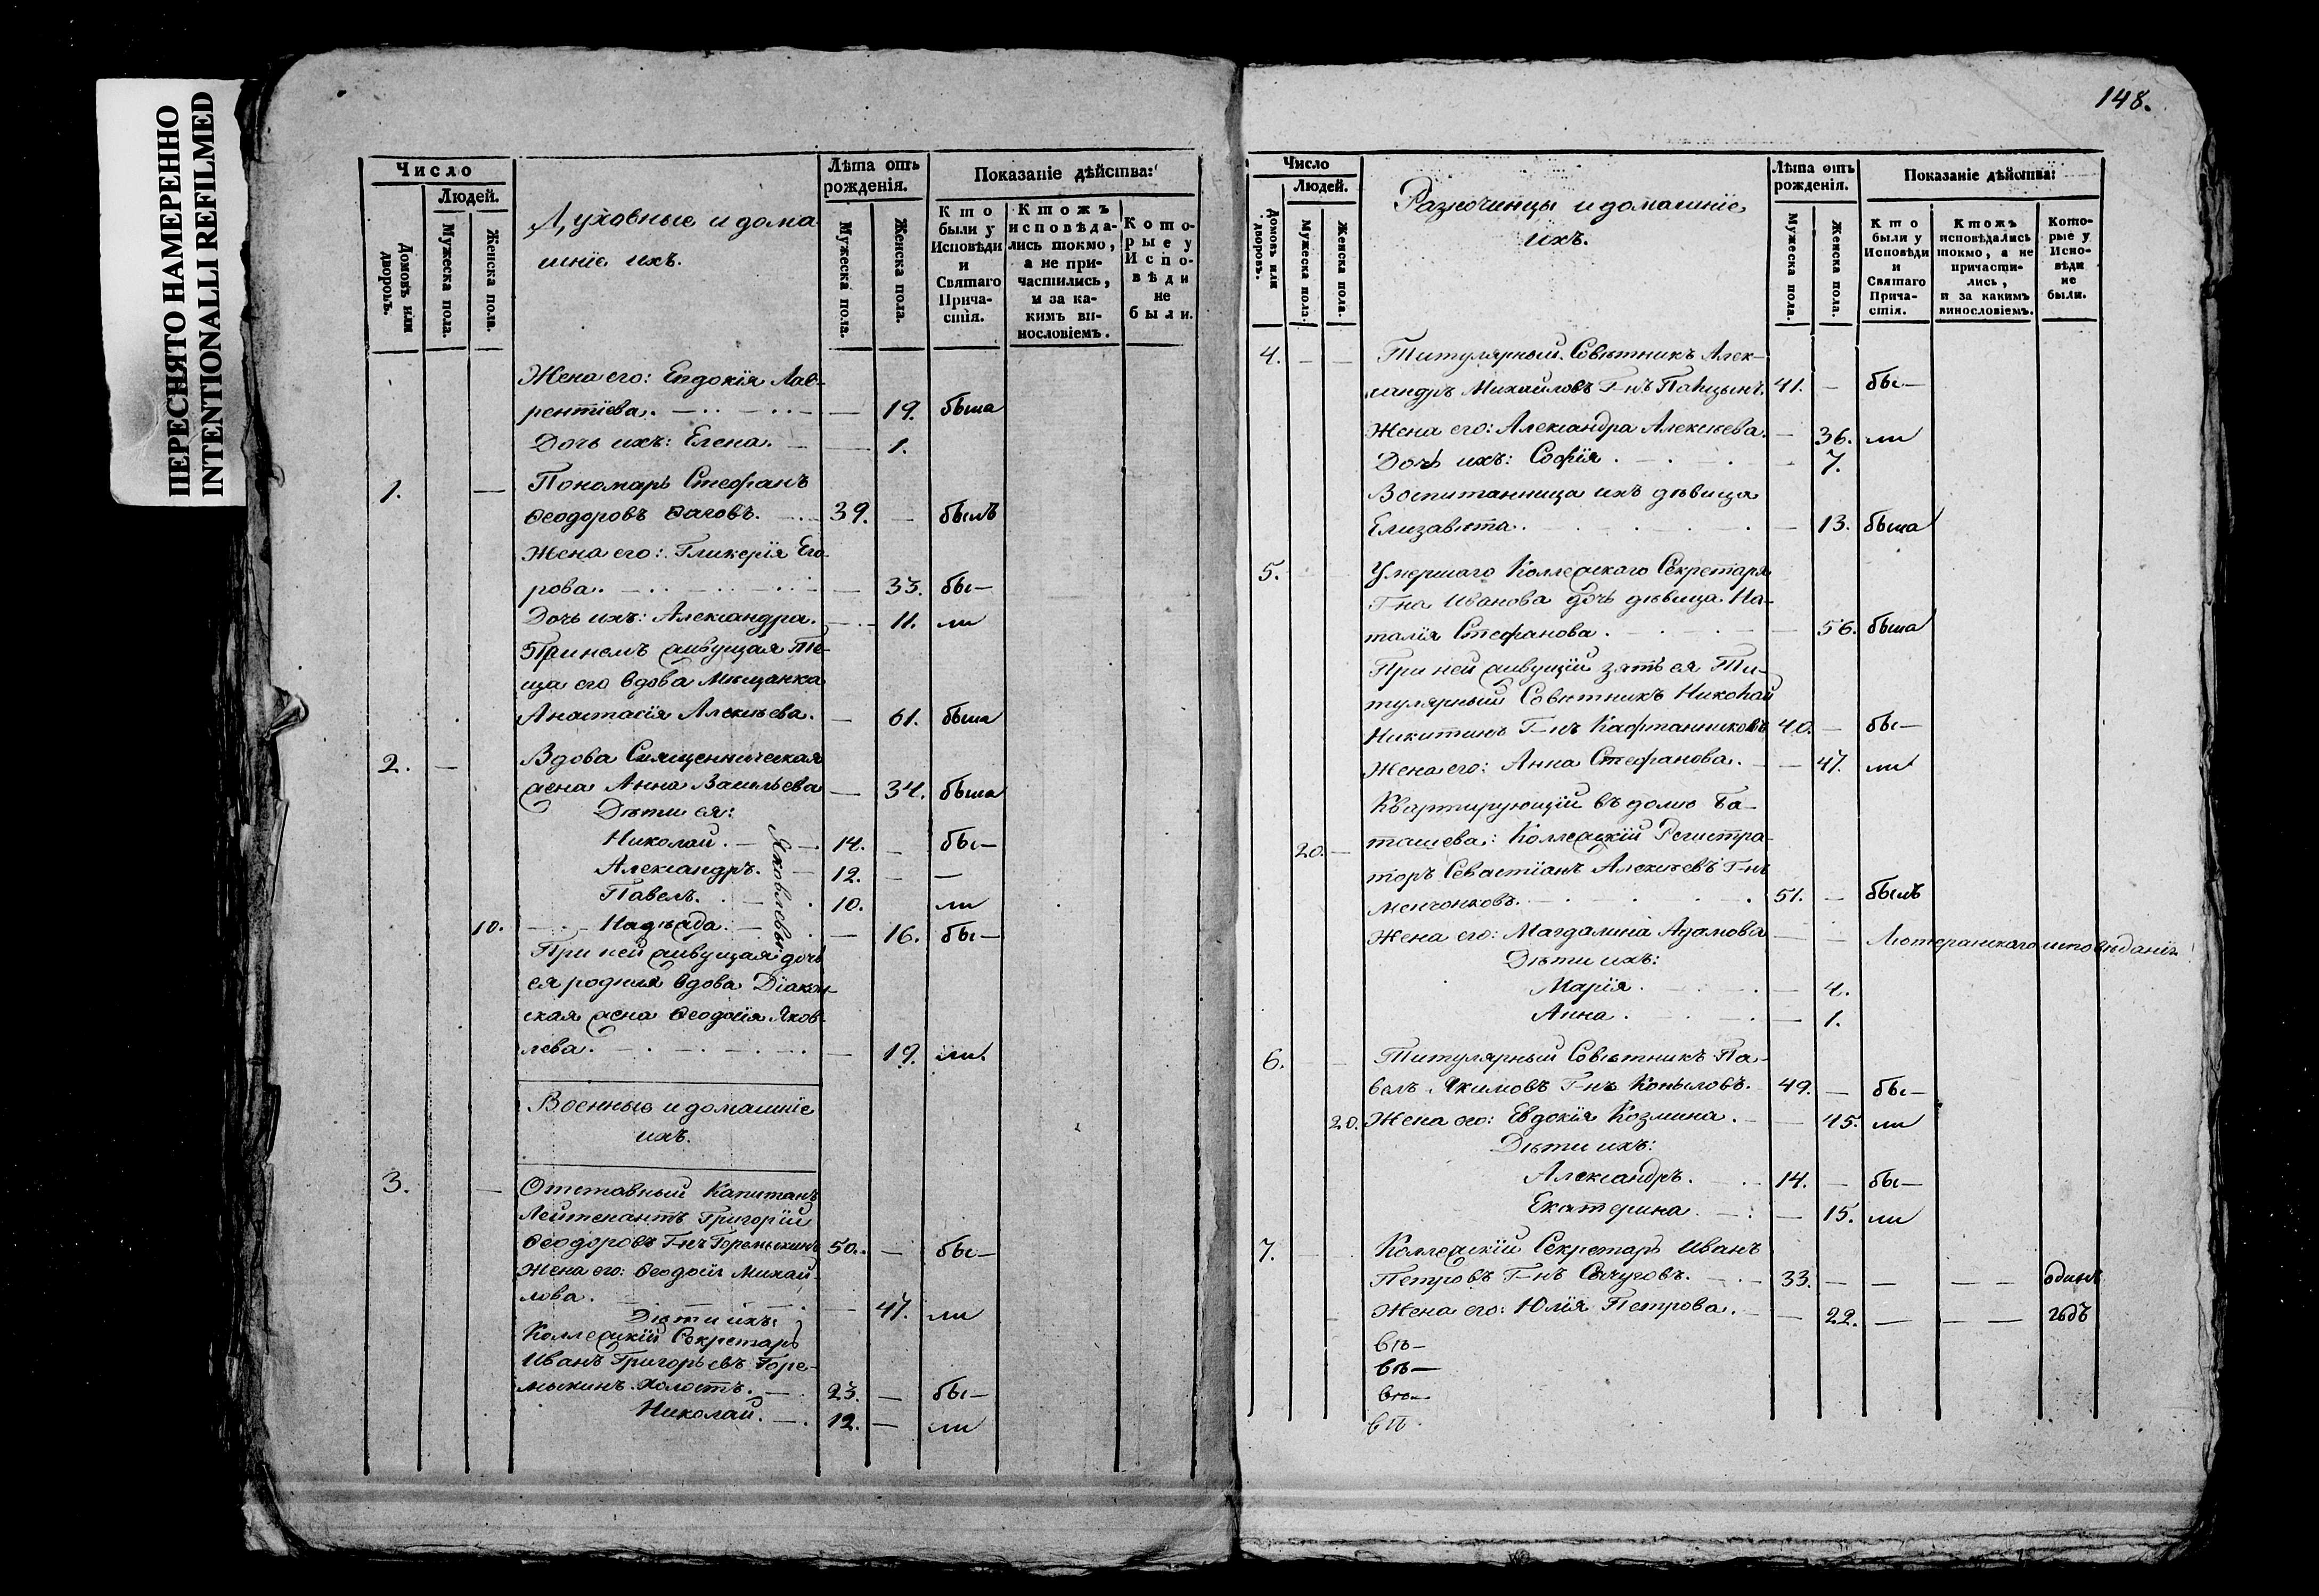 ПЕРЕСНЯТО НАМЕРЕННО
INTENTIONALLI REFILMED
Число
Людей.
Домовъ или дворовъ.
Мужеска пола.
Женска пола.
Духовные и дома-
шніе ихъ.
Лѣта отъ рожденія.
Мужеска пола.
Женска пола.
Показаніе дѣйства:
Кто были у Исповѣди и Святаго Прича-стія.
Ктожъ исповѣда-лись токмо, а не при-частились, и за ка-кимъ ви-нословіемъ.
Кото-рые у Испо-вѣди не были.
Жена его: Евдокія Лав-
рентіева. — 19. была
Дочь ихъ: Елена. — 1.
1. — Пономарь Стефанъ
Ѳеодоровъ 39. — былъ
Жена его: Гликерія Его-
рова. — 33. бы—
Дочь ихъ: Александра. — 11. ли
При немъ живущая Те-
ща его вдова Мѣщанка
Анастасія Алексѣева. — 61. была
2. — Вдова Священническая
жена Анна Васильева — 34. была
Дѣти ея:
Николай. 14. — бы—
Александръ. 12. — —
Павелъ. 10. ли
10. Надежда. — 16. бы—
Яковлевы
При ней живущая дочь
ея родная вдова Діакон-
ская жена Ѳеодосія Яков-
лева. — 19. ли.
Военные и домашніе
ихъ.
3. — Отставный Капитанъ
Лейтенантъ Григорій
Ѳеодоровъ Г-нъ Горемыкинъ 50. — бы—
Жена его: Ѳеодосія Михай-
лова. — 47. ли
Дѣти ихъ:
Коллежскій Секретарь
Иванъ Григорьевъ Горе-
мыкинъ холостъ. 23. — бы—
Николай. 12. — ли
148.
Число
Людей.
Домовъ или дворовъ.
Мужеска пола.
Женска пола.
Разночинцы и домашніе
ихъ.
Лѣта отъ рожденія.
Мужеска пола.
Женска пола.
Показаніе дѣйства:
Кто были у Исповѣди и Святаго Прича-стія.
Ктожъ исповѣдались токмо, а не причасти-лись, и за какимъ винословіемъ.
Кото-рые у Испо-вѣди не были.
4. — — Титулярный Совѣтникъ Алек-
сандръ Михайловъ Г-нъ 41. — бы—
Жена его: Александра Алексѣева. — 36. ли
Дочь ихъ: Софія. — 7.
Воспитанница ихъ дѣвица
Елизавета. — 13. была
5. Умершаго Коллежскаго Секретаря
Г-на Иванова дочь дѣвица На-
талія Стефанова. — 56. была
При ней живущій зять ея Ти-
тулярный Совѣтникъ Николай
Никитинъ Г-нъ Кафтанниковъ 40. — бы—
Жена его: Анна Стефанова. — 47. ли
Квартирующій въ домѣ Ба-
ташева: Коллежскій Регистра-
20. — торъ Севастіанъ Алексѣевъ Г-нъ
Менчонковъ. 51. — былъ
Жена его: Магдалина Адамова — — Лютеранскаго исповѣданія
Дѣти ихъ:
Марія. — 4.
Анна. — 1.
6. Титулярный Совѣтникъ Па-
велъ Якимовъ Г-нъ Копыловъ. 49. — бы—
20. Жена его: Евдокія Козмина. — 45. ли
Дѣти ихъ:
Александръ. 14. — бы—
Екатерина. — 15. ли
7. Коллежскій Секретарь Иванъ
Петровъ Г-нъ 33. — — — — одинъ
Жена его: Юлія Петрова. — 22. — — — годъ
въ—
въ—
въ—
въ